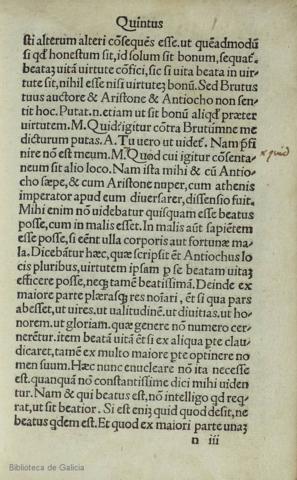 Quintus
sti alterum alteri cõsequẽs esse. ut quẽadmodũ
si qď honestum sit, id solum sit bonum, sequat̃.
beataʒ uitã uirtute cõfici, sic si uita beata in uir-
tute sit, nihil esse nisi uirtuteʒ bonũ. Sed Brutus
tuus auctore & Aristone & Antiocho non sen-
tit hoc. Putat.n. etiam ut sit bonũ aliqď præter
uirtutem. M. Quid: igitur cõtra Brutũmne me
dicturum putas. A. Tu uero ut uidet̃. Nam p̃fi
nire nõ est meum. M. Quod cui igitur cõsenta
quid
neum sit alio loco. Nam ista mihi & cũ Antio-
cho sæpe, & cum Aristone nuper, cum athenis
imperator apud eum diuersarer, dissensio fuit.
Mihi enim nõ uidebatur quisquam esse beatus
posse, cum in malis esset. In malis aũt sapiẽtem
esse posse, si eẽnt ulla corporis aut fortunæ ma-
la. Dicebãtur hæc, quæ scripsit ẽt Antiochus lo
cis pluribus, uirtutem ipsam p se beatam uitaʒ
efficere posse, neqʒ tamẽ beatissimã. Deinde ex
maiore parte plærasqʒ res noĩari, ẽt si qua pars
abesset, ut uires. ut ualitudinẽ. ut diuitias. ut ho-
norem. ut gloriam. quæ genere nõ numero cer-
nerẽtur. item beatã uitã ẽt si ex aliqua pte clau
dicaret, tamẽ ex multo maiore pte optinere no
men suum. Hæc nunc enucleare nõ ita necesse
est. quanquã nõ constantissime dici mihi uiden
tur. Nam & qui beatus est, nõ intelligo qď reqͥ-
rat, ut sit beatior. Si est eniʒ quid quod desit, ne
beatus qdem est. Et quod ex maiori parte unaʒ
n iii
Biblioteca de Galicia